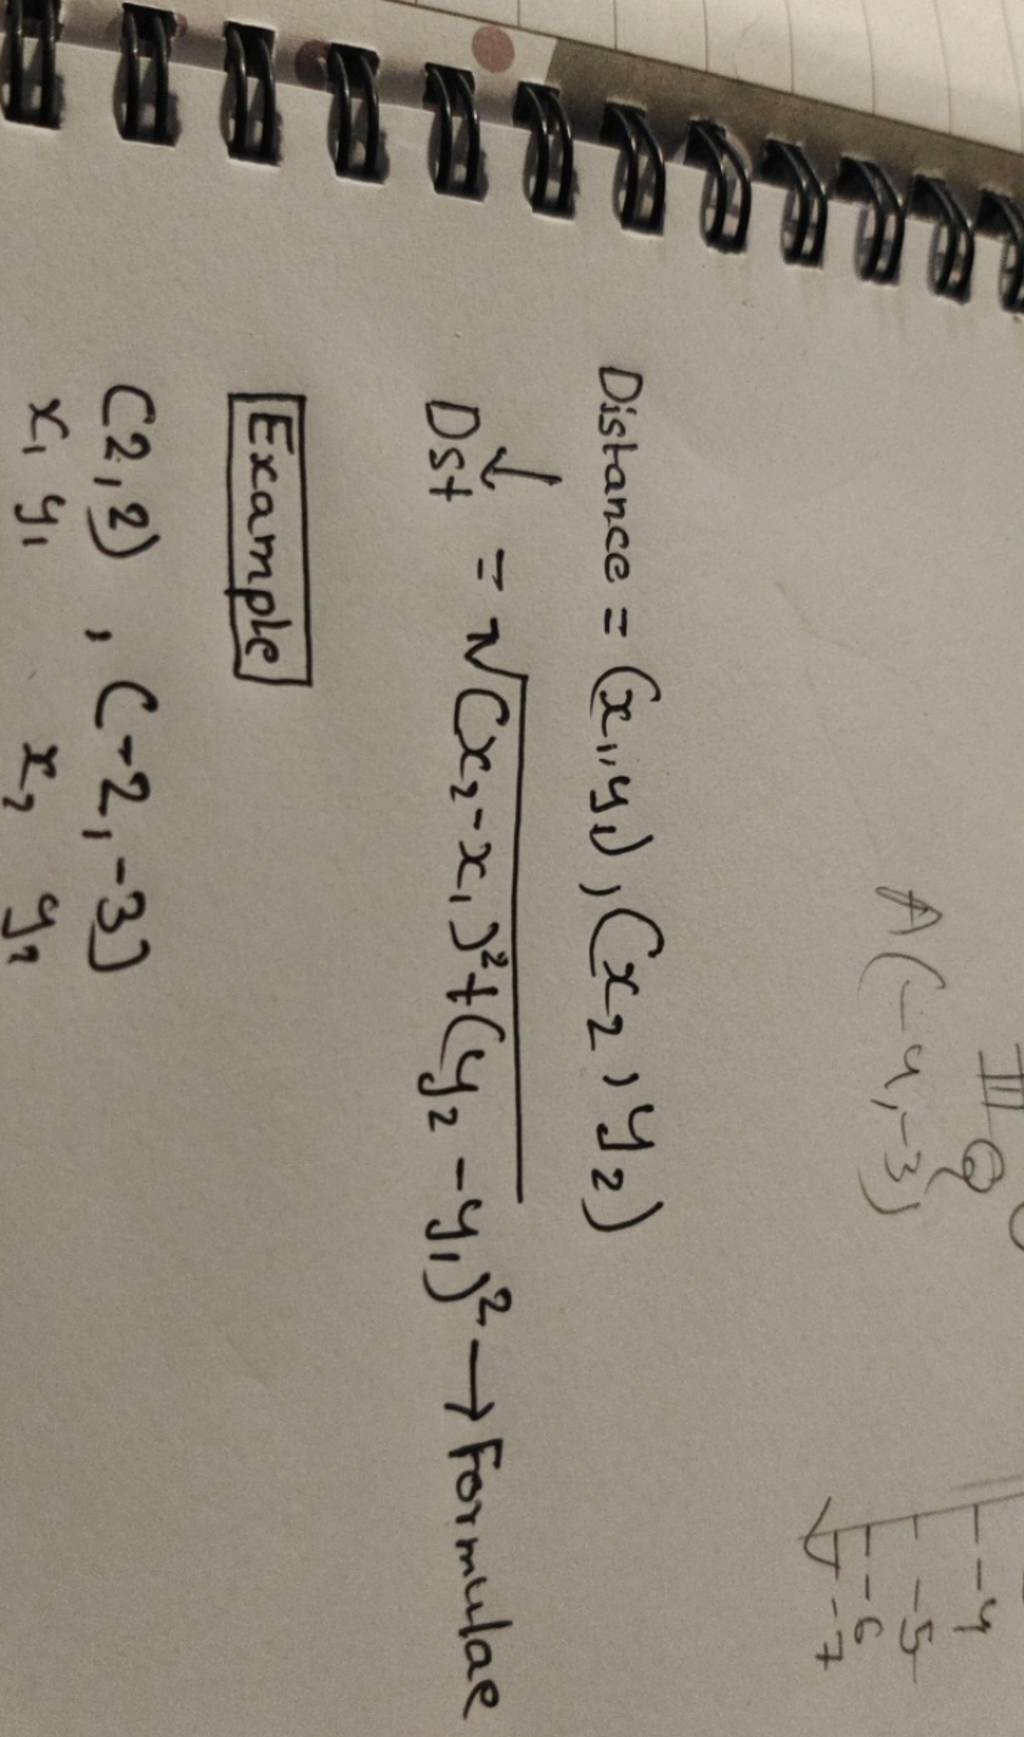 III
A (-4,-3)
-4
-5
-6
-7
Distance = (x₁,y₁), (x₂, y₂)
Dst = √(x₂-x₁)²+(y₂-y₁)² → Formulae
Example
(2,2), (-2,-3)
x₁ y₁ x₂ y₂